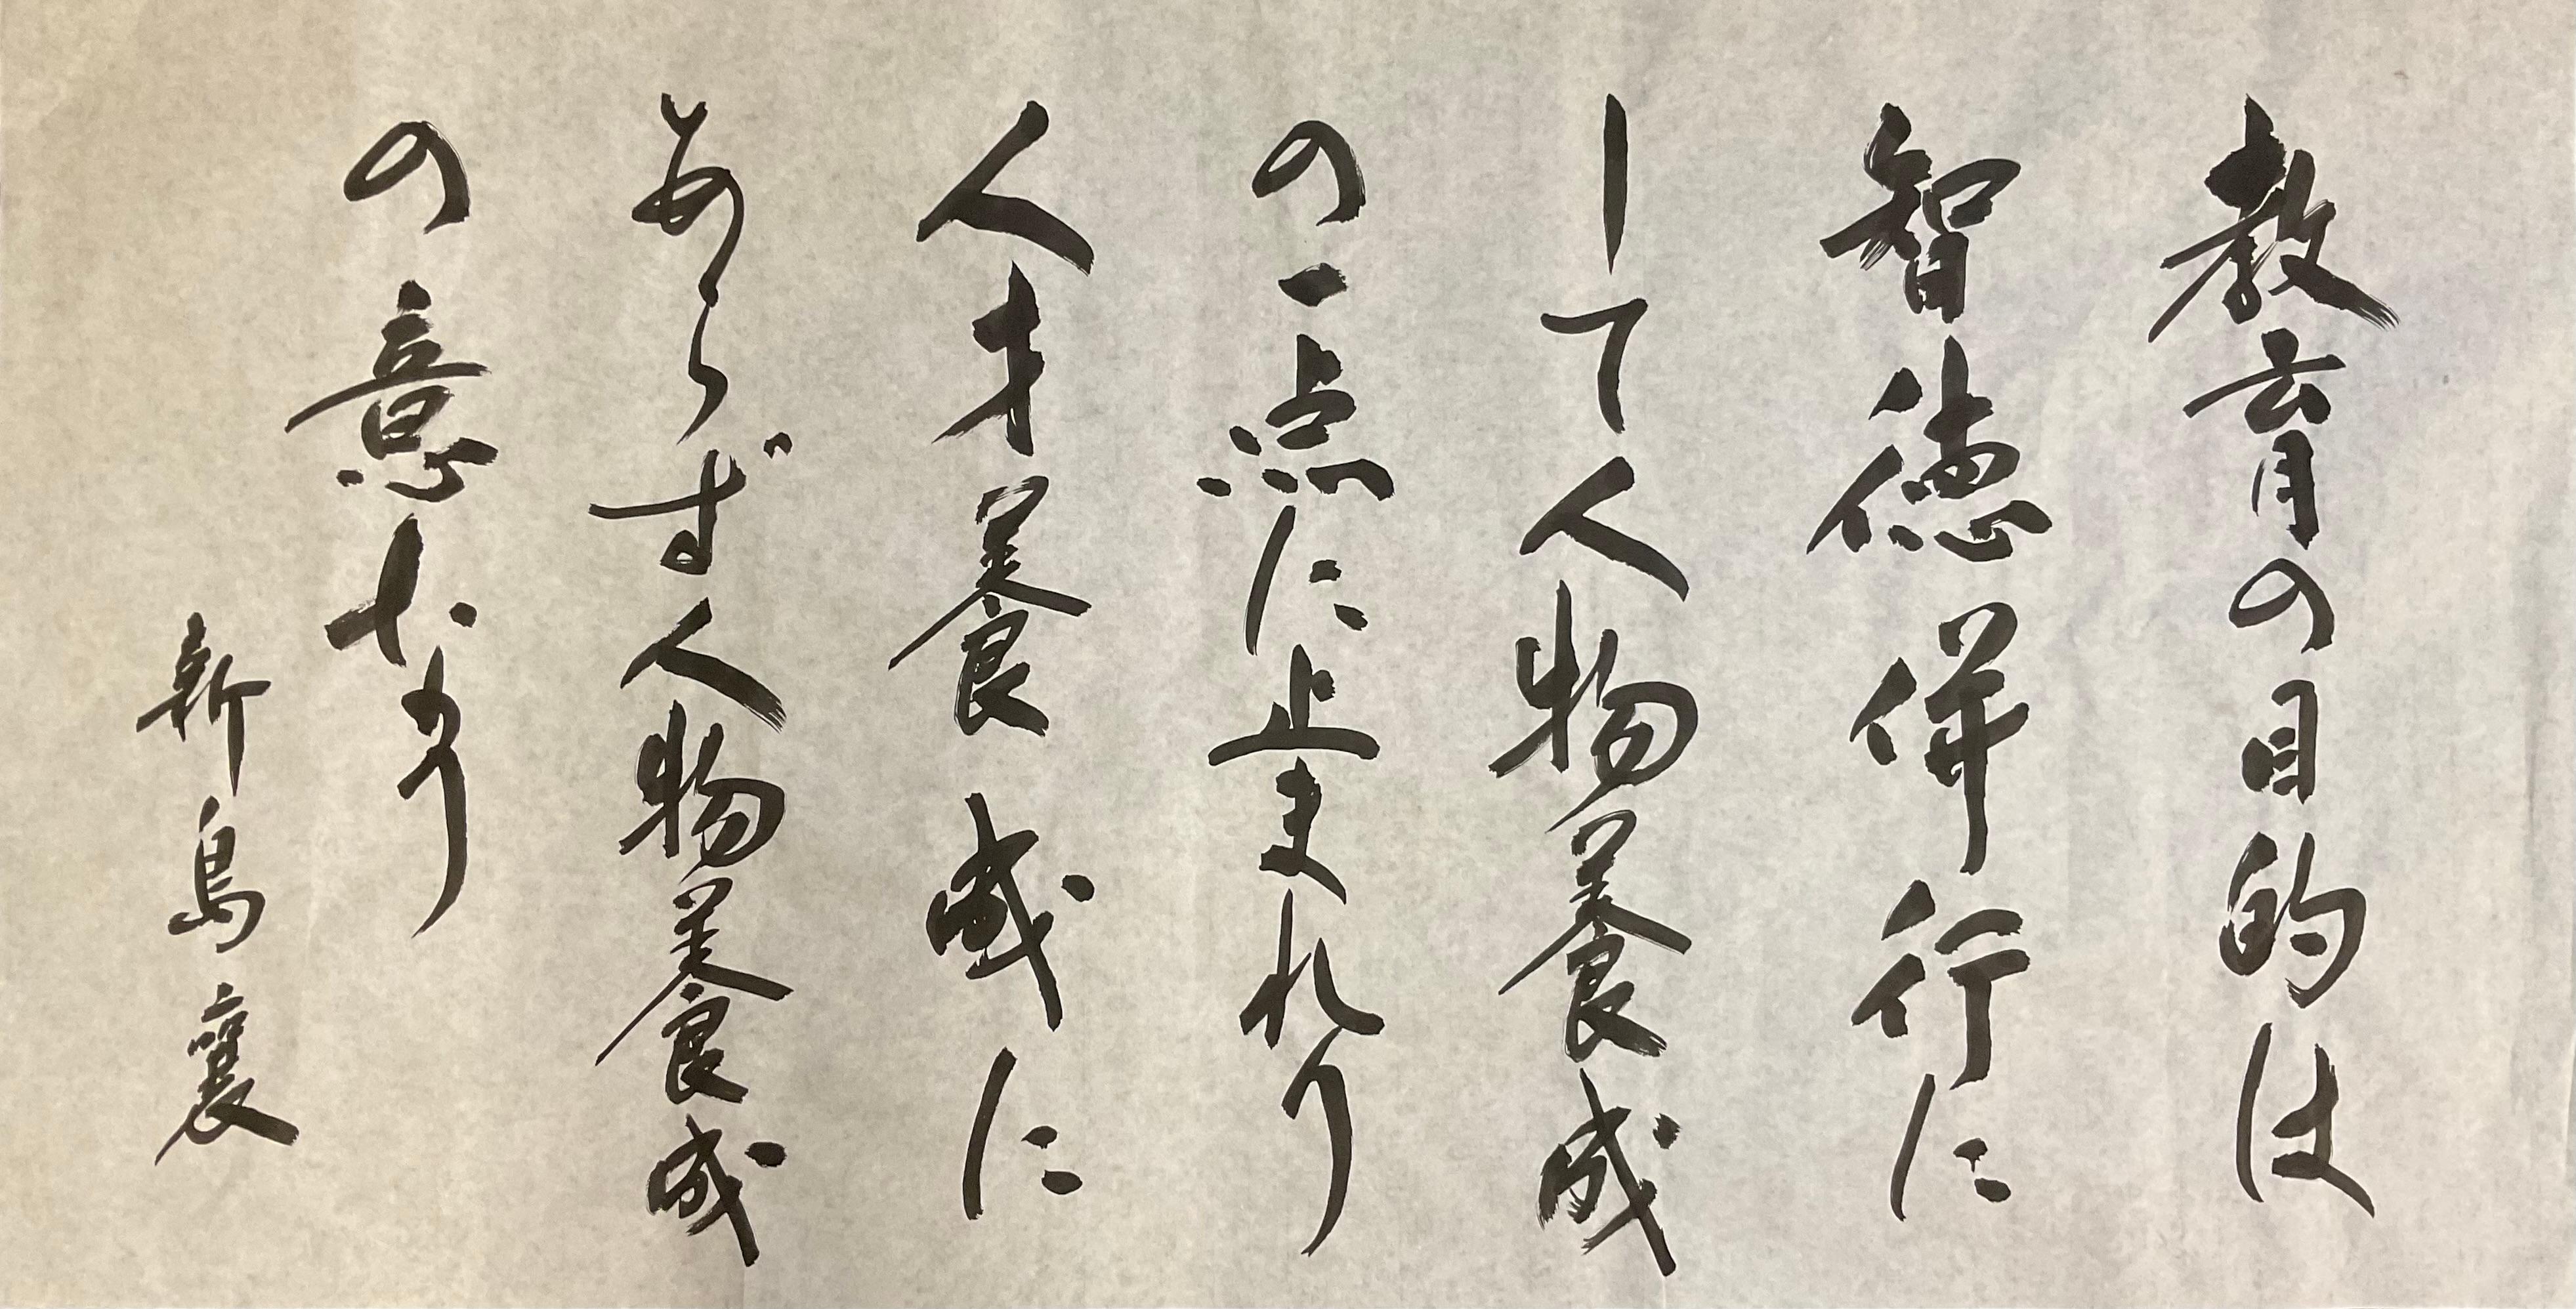 教育の目的は
智徳併行に
して人物養成
の一点に止まれり
人才養成に
あらず人物養成
の意なり
新島襄